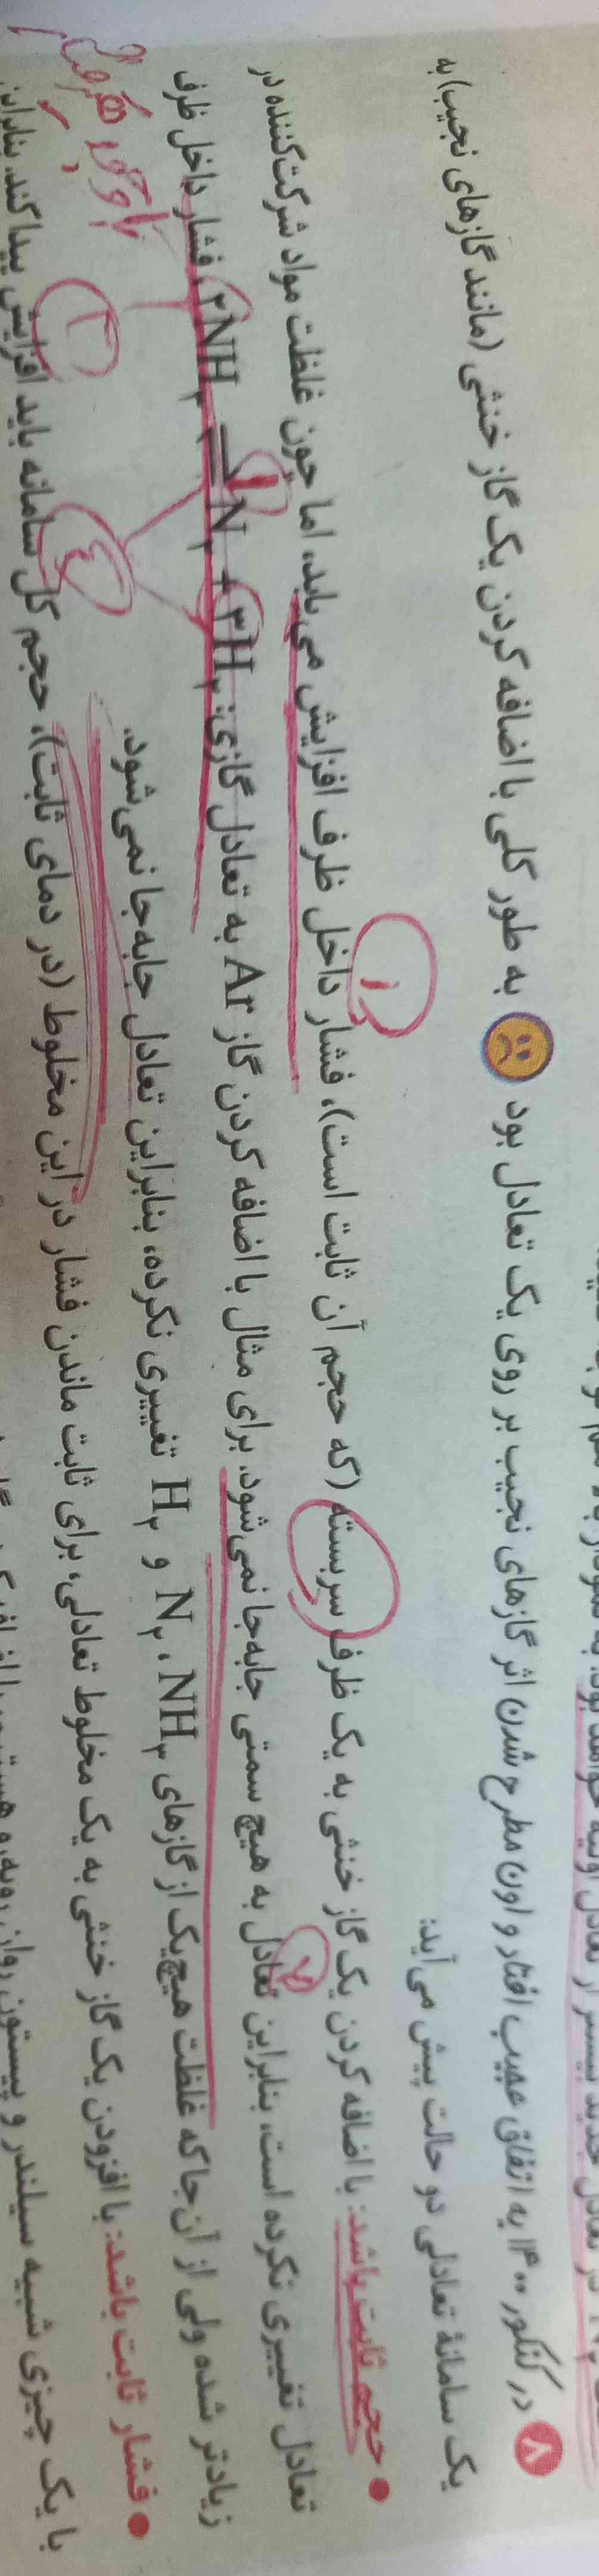 ۸ در کنکور ۱۴۰۰ یه اتفاق عجیب افتاد و اون مطرح شدن اثر گازهای نجیب بر روی یک تعادل بود به طور کلی با اضافه کردن یک گاز خنثی (مانند گازهای نجیب) به
یک سامانهٔ تعادلی دو حالت پیش می‌آید:
• حجم ثابت باشد: با اضافه کردن یک گاز خنثی به یک ظرف سربسته (که حجم آن ثابت است)، فشار داخل ظرف افزایش می‌یابد، اما چون غلظت مواد شرکت‌کننده در
تعادل تغییری نکرده است، بنابراین تعادل به هیچ سمتی جابه‌جا نمی‌شود. برای مثال با اضافه کردن گاز Ar به تعادل گازی: ۲NH۳ ⇌ N۲ + ۳H۲، فشار داخل ظرف
زیادتر شده ولی از آن‌جا که غلظت هیچ‌یک از گازهای NH۳، N۲ و H۲ تغییری نکرده، بنابراین تعادل جابه‌جا نمی‌شود.
• فشار ثابت باشد: با افزودن یک گاز خنثی به یک مخلوط تعادلی، برای ثابت ماندن فشار در این مخلوط (در دمای ثابت)، حجم کل سامانه باید افزایش پیدا کند. بنابراین
با یک چیزی شبیه سیلندر و پیستون روان روبه‌رو هستیم